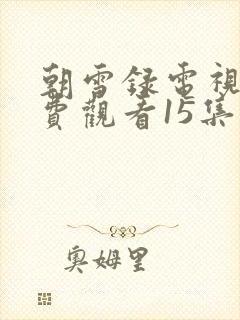 朝雪録電視
費觀看15集
奧姆里